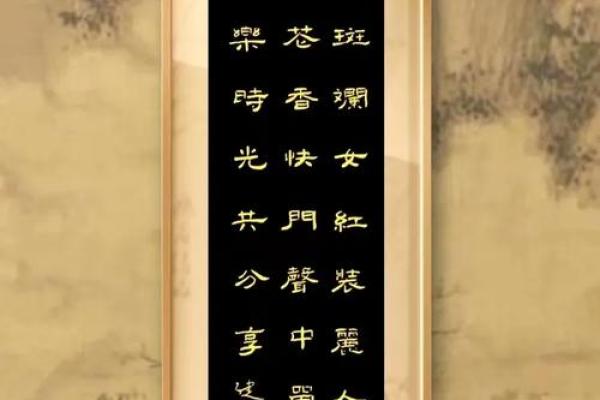 斑斕女紅裝麗
花香快門聲中
樂時光共分享